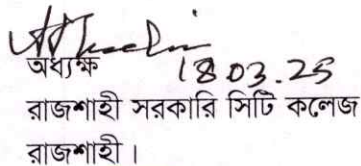 অধ্যক্ষ
18.03.25
রাজশাহী সরকারি সিটি কলেজ
রাজশাহী।